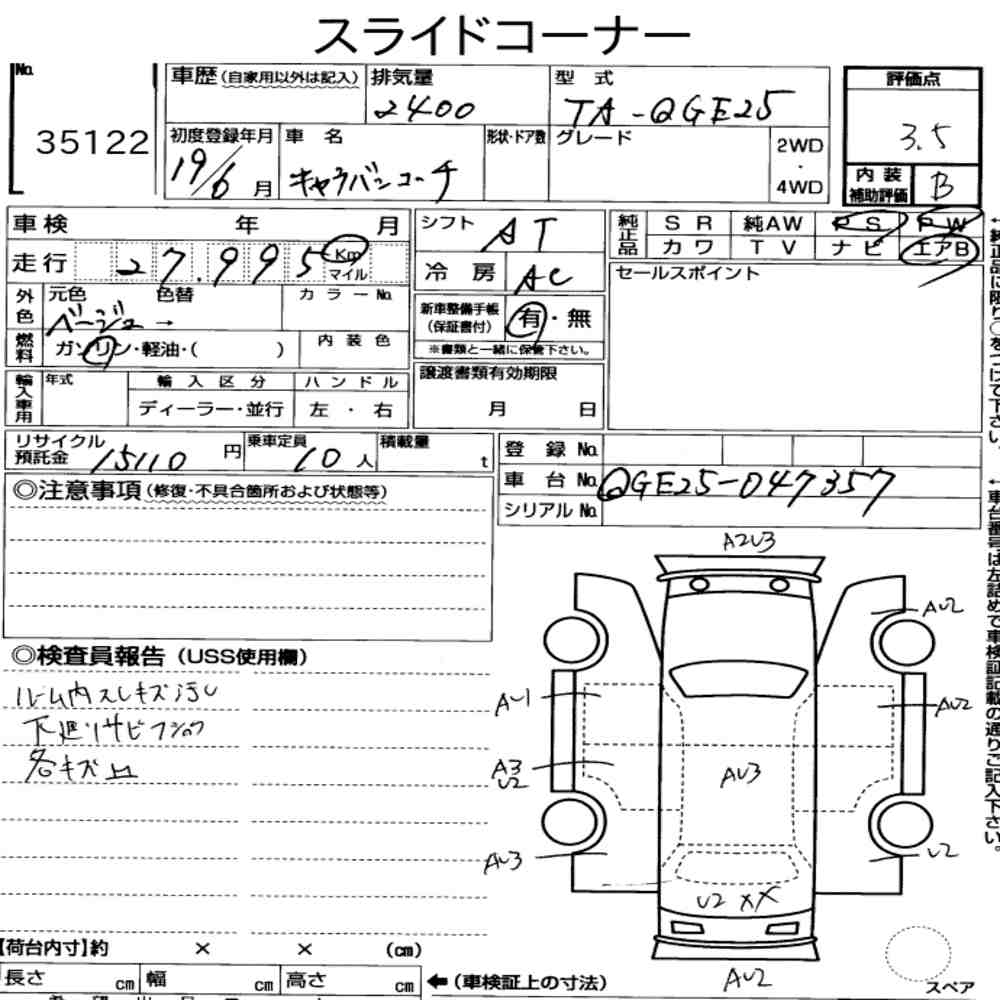 スライドコーナー
No. 35122
車歴(自家用以外は記入)
排気量 2400
型式 TA-QGE25
評価点 3.5
初度登録年月 19/6月
車名 キャラバンコーチ
形状・ドア数
グレード
2WD
・
4WD
内装補助評価 B
車検 年 月
走行 27.995 Km マイル
シフト AT
冷房 AC
純正品 SR 純AW PS PW
カワ TV ナビ エアB
セールスポイント
外色 元色 色替 カラーNo.
ベージュ →
新車整備手帳(保証書付) 有・無
※書類と一緒に保管下さい。
燃料 ガソリン・軽油・( ) 内装色
輸入車用 年式 輸入区分 ハンドル
ディーラー・並行 左・右
譲渡書類有効期限
月 日
リサイクル預託金 15110円
乗車定員 10人
積載量 t
登録No.
車台No. QGE25-047357
シリアルNo.
◎注意事項(修復・不具合箇所および状態等)
◎検査員報告(USS使用欄)
ルーム内スレキズ汚レ
下廻リサビフショク
各キズ凹
A2U3
AU2
AU1
AU2
A3
U2
AU3
AU3
U2
U2 XX
AU2
スペア
【荷台内寸】約 × × (cm)
長さ cm 幅 cm 高さ cm
←(車検証上の寸法)
←純正品に限り○をつけて下さい。
←車台番号は左詰めで車検証記載の通りご記入下さい。